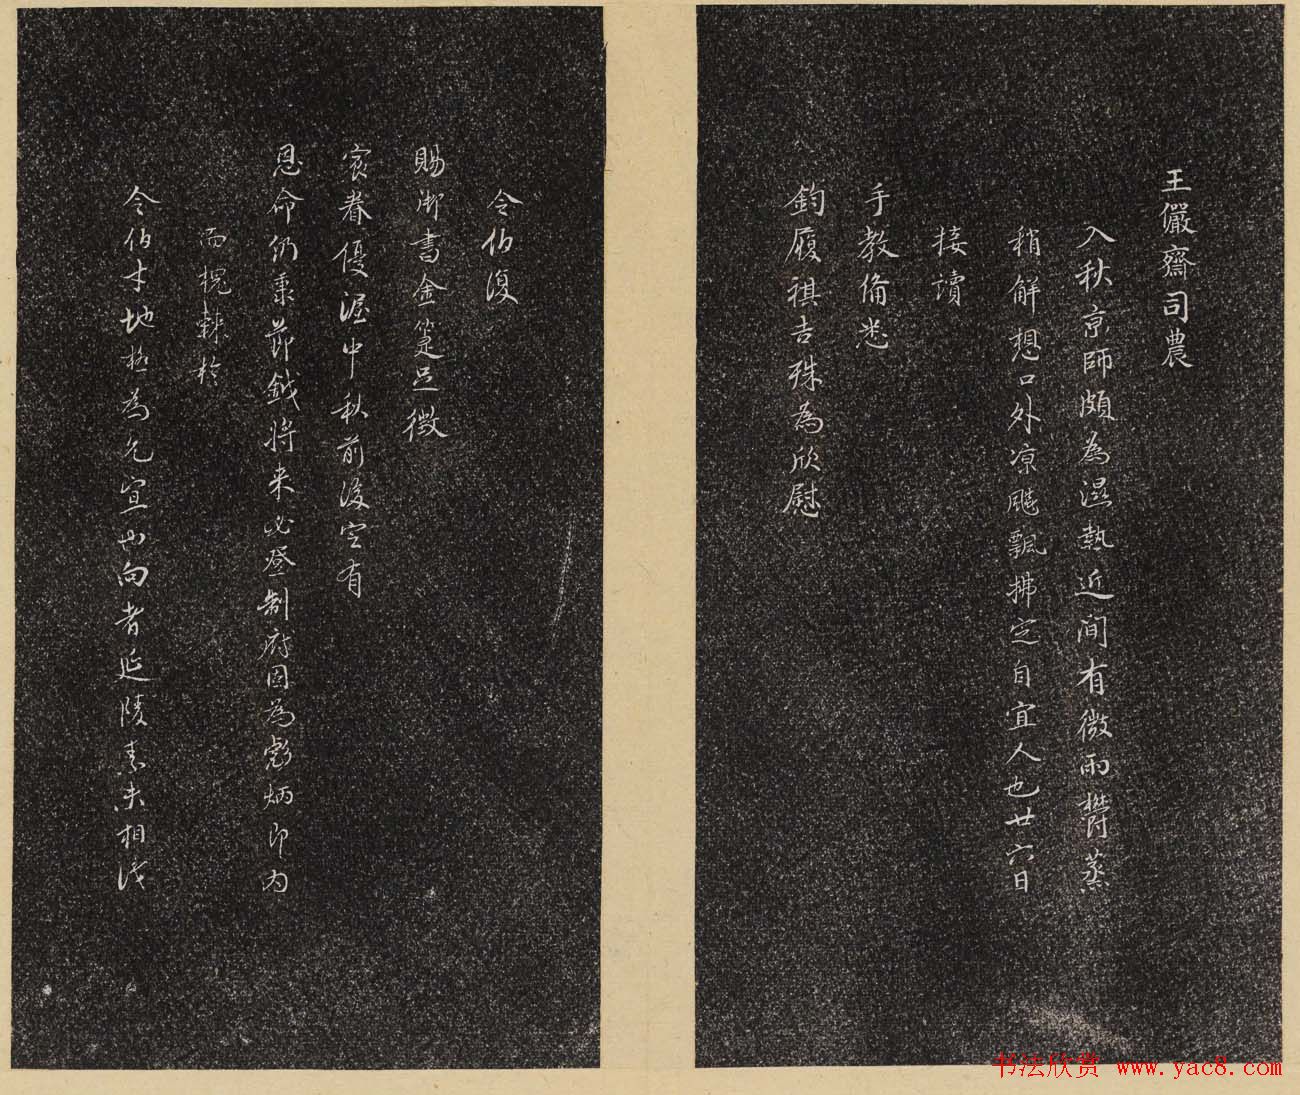 王儼齋司農
入秋京師頗為濕熱近間有微雨欝蒸
稍解想口外凉飈飄拂定自宜人也廿六日
接讀
手教備悉
鈞履祺吉殊為欣慰
令伯復
賜御書金箑足徵
宸眷優渥中秋前後定有
恩命仍秉節鉞將来必登制府固為彪炳即内
而槐棘於
令伯才地極為允宜也向者延陵素未相識
书法欣赏 www.yac8.com